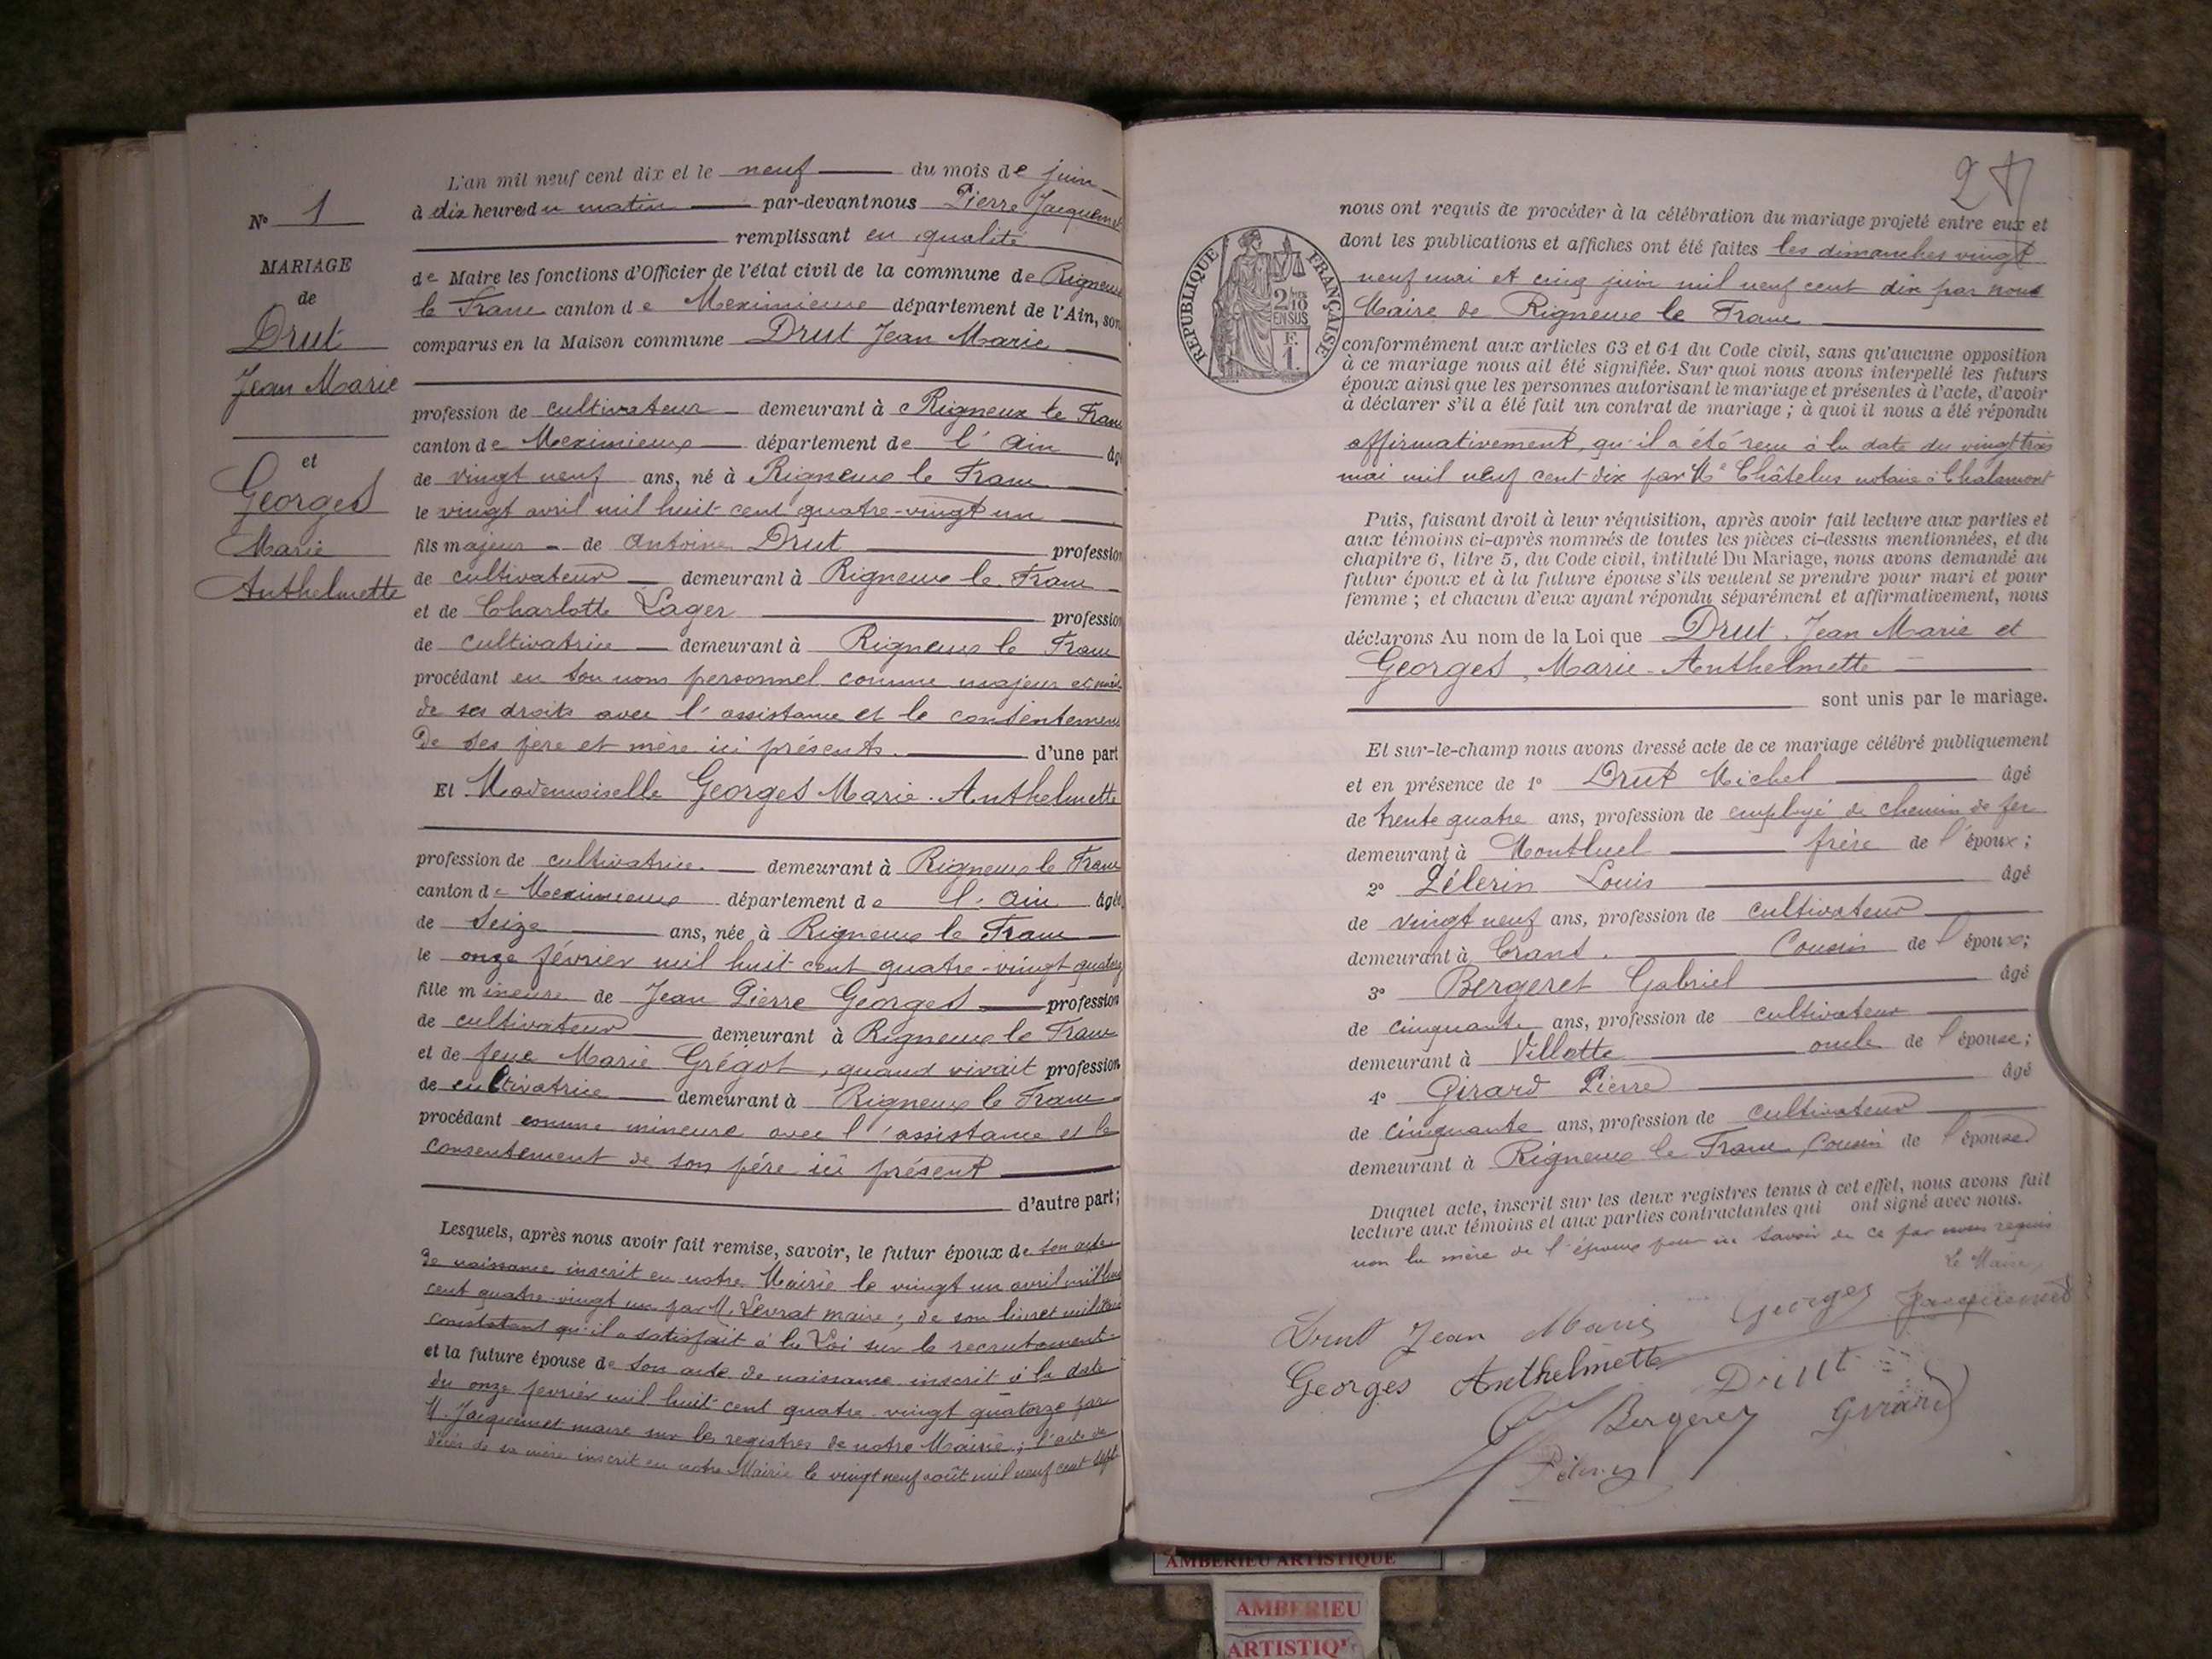 N° 1
MARIAGE
de
Drut
Jean Marie
et
Georges
Marie
Anthelmette
L'an mil neuf cent dix et le neuf du mois de juin
à dix heures du matin par-devant nous Pierre Jacquemet
remplissant en qualité
de Maire les fonctions d'Officier de l'état civil de la commune de Rigneux
le Franc canton de Meximieux département de l'Ain, son
comparus en la Maison commune Drut Jean Marie
profession de cultivateur demeurant à Rigneux le Franc
canton de Meximieux département de l'Ain âgé
de vingt neuf ans, né à Rigneux le Franc
le vingt avril mil huit cent quatre-vingt un
fils majeur de Antoine Drut profession
de cultivateur demeurant à Rigneux le Franc
et de Charlotte Lager profession
de cultivatrice demeurant à Rigneux le Franc
procédant en son nom personnel comme majeur et
de ses droits avec l'assistance et le consentement
de ses père et mère ici présents. d'une part
Et Mademoiselle Georges Marie-Anthelmette
profession de cultivatrice demeurant à Rigneux le Franc
canton de Meximieux département de l'Ain âgée
de seize ans, née à Rigneux le Franc
le onze février mil huit cent quatre-vingt quatorze
fille mineure de Jean Pierre Georges profession
de cultivateur demeurant à Rigneux le Franc
et de feue Marie Grégot, quand vivait profession
de cultivatrice demeurant à Rigneux le Franc
procédant comme mineure avec l'assistance et le
consentement de son père ici présent
d'autre part;
Lesquels, après nous avoir fait remise, savoir, le futur époux de son acte
de naissance inscrit en notre Mairie le vingt un avril mil huit
cent quatre-vingt un par M. Levrat maire; de son livret militaire
constatant qu'il a satisfait à la Loi sur le recrutement
et la future épouse de son acte de naissance inscrit à la date
du onze février mil huit cent quatre-vingt quatorze par
M. Jacquemet maire sur les registres de notre Mairie; l'acte de
décès de sa mère inscrit en notre Mairie le vingt neuf août mil neuf cent sept
2
nous ont requis de procéder à la célébration du mariage projeté entre eux et
dont les publications et affiches ont été faites les dimanches vingt
neuf mai et cinq juin mil neuf cent dix par nous
Maire de Rigneux le Franc
RÉPUBLIQUE FRANÇAISE
2/10
EN SUS
F.
1.
conformément aux articles 63 et 64 du Code civil, sans qu'aucune opposition
à ce mariage nous ait été signifiée. Sur quoi nous avons interpellé les futurs
époux ainsi que les personnes autorisant le mariage et présentes à l'acte, d'avoir
à déclarer s'il a été fait un contrat de mariage; à quoi il nous a été répondu
affirmativement, qu'il a été reçu à la date du vingt trois
mai mil neuf cent dix par Me Châtelus notaire à Chalamont
Puis, faisant droit à leur réquisition, après avoir fait lecture aux parties et
aux témoins ci-après nommés de toutes les pièces ci-dessus mentionnées, et du
chapitre 6, titre 5, du Code civil, intitulé Du Mariage, nous avons demandé au
futur époux et à la future épouse s'ils veulent se prendre pour mari et pour
femme; et chacun d'eux ayant répondu séparément et affirmativement, nous
déclarons Au nom de la Loi que Drut, Jean Marie et
Georges, Marie-Anthelmette
sont unis par le mariage.
Et sur-le-champ nous avons dressé acte de ce mariage célébré publiquement
et en présence de 1° Drut Michel âgé
de trente quatre ans, profession de employé de chemin de fer
demeurant à Montluel frère de l'époux;
2° Pélerin Louis âgé
de vingt neuf ans, profession de cultivateur
demeurant à Crans. Cousin de l'époux;
3° Bergeret Gabriel âgé
de cinquante ans, profession de cultivateur
demeurant à Villette oncle de l'épouse;
4° Girard Pierre âgé
de cinquante ans, profession de cultivateur
demeurant à Rigneux le Franc, Cousin de l'épouse
Duquel acte, inscrit sur les deux registres tenus à cet effet, nous avons fait
lecture aux témoins et aux parties contractantes qui ont signé avec nous.
non la mère de l'époux pour ne savoir de ce par nous requis
Le Maire,
Drut Jean Marie Georges Jacquemet
Georges Anthelmette Drut
Bergeret Girard
AMBERIEU ARTISTIQUE
AMBERIEU
ARTISTIQ